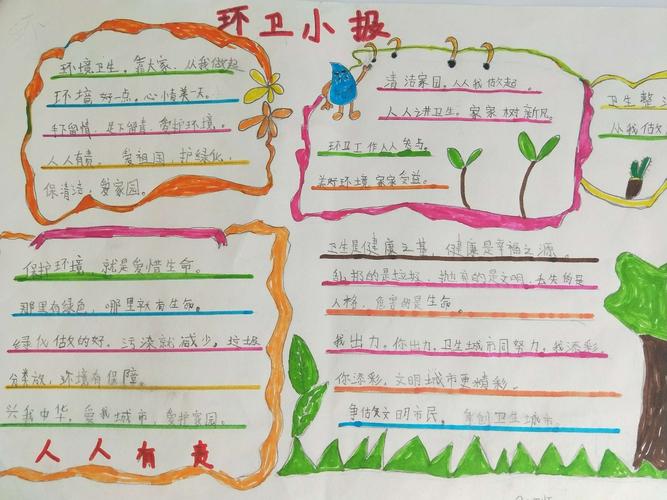 环卫小报
环境卫生。靠大家、从我做起
环境好一点。心情美一天。
手下留情、足下留青、爱护环境、
人人有责。爱祖国、护绿化、
保清洁、爱家园。
清洁家园。人人我做起。
人人讲卫生。家家树新风。
环卫工作人人参与。
关好环境家家受益。
卫生整洁
从我做
保护环境、就是爱惜生命。
那里有绿色、哪里就有生命。
绿化做的好、污染就减少。垃圾
分类放、环境有保障。
兴我中华、爱我城市、爱护家园。
人人有责
卫生是健康之基、健康是幸福之源。
乱扔的是垃圾、抛弃的是文明、丢失的是
人格、危害的是生命。
我出力。你出力、卫生城市同努力。我添彩
你添彩、文明城市更精彩。
争做文明市民。争创卫生城市。